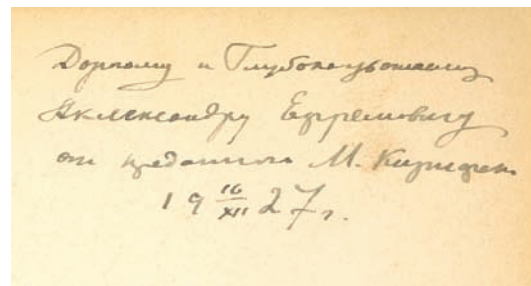 Дорогому и Глубокоуважаемому
Александру Ефремовичу
от преданного М.
19 16/XII 27 г.